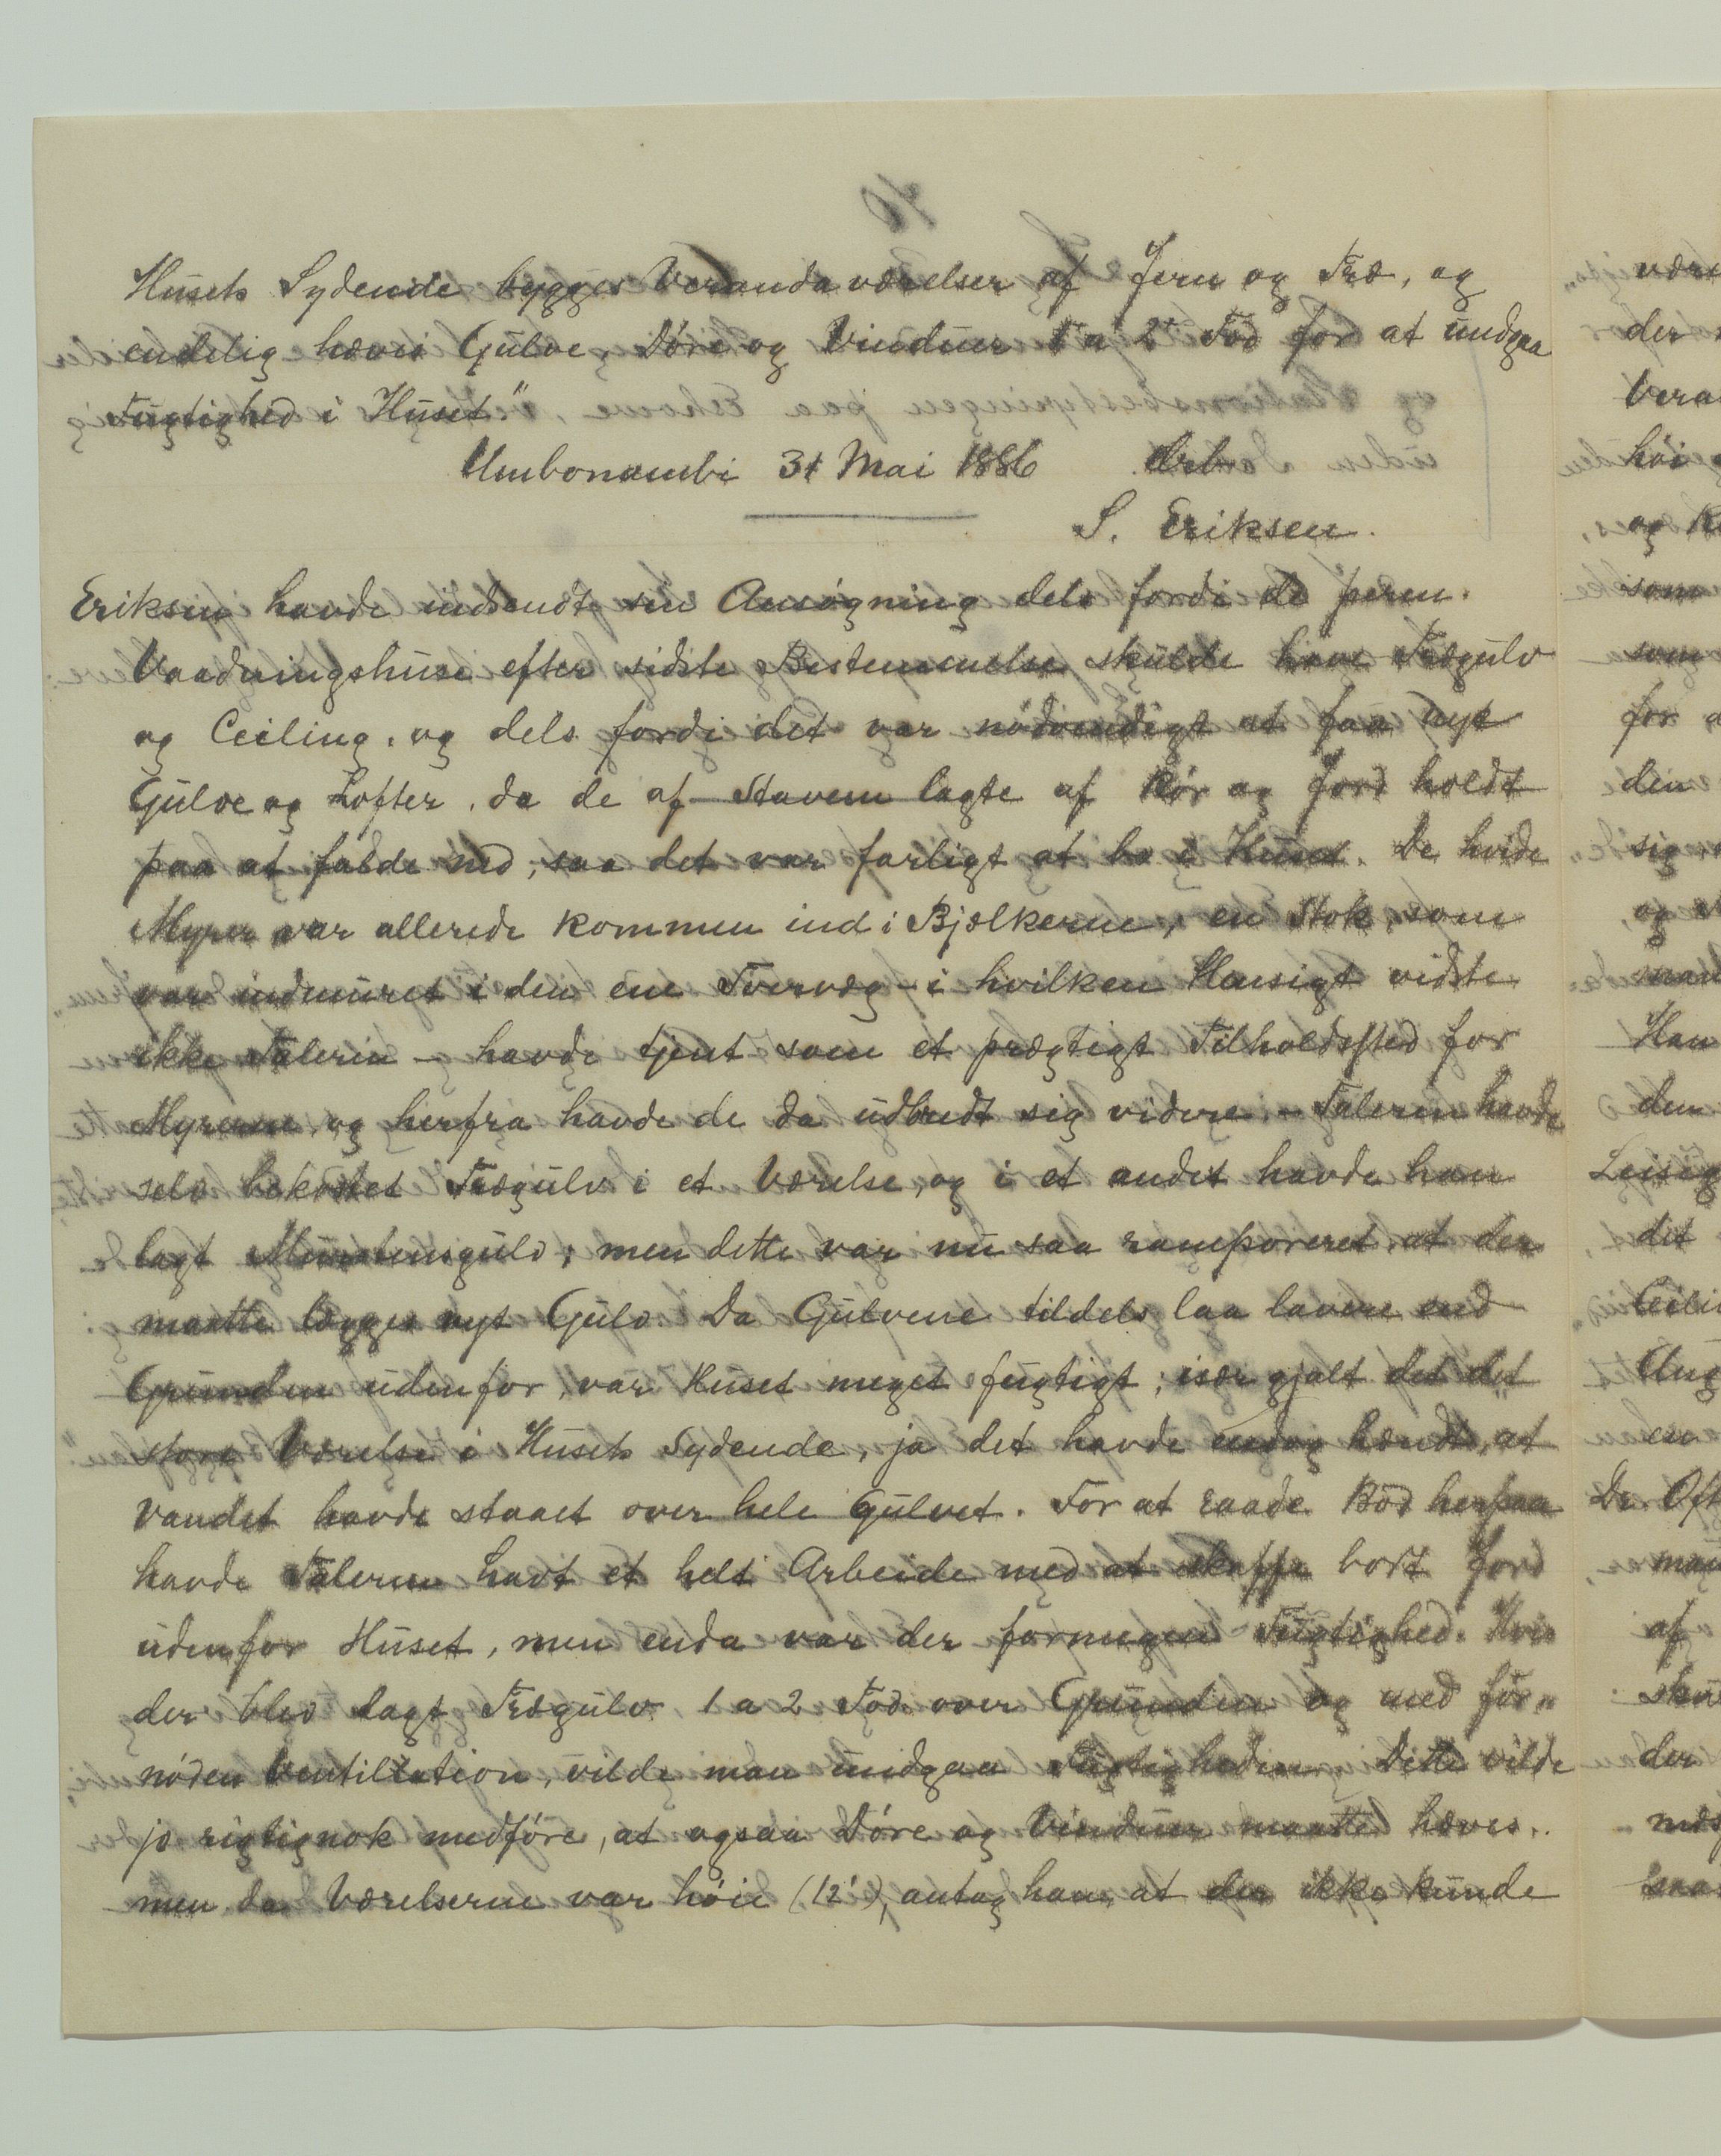 Husets Sydende bygges Verandaværelser af Jern og Træ, og
endelig hæves Gulve, Döre og Vinduer 1 a 2 Fod for at undgaa
Fugtighed i Huset."
Umbonambi 31 Mai 1886 Erb.
S. Eriksen.
Eriksen havde indsendt sin Ansögning dels fordi de perm.
Vaadningshuse efter sidste Bestemmelse skulde have Trægulv
og Ceiling, og dels fordi det var nödvendigt at faa nye
Gulve og Lofter, da de af Stavem lagte af Rör og Jord holdt
paa at falde ned, saa det var farligt at bo i Huset. De hvide
Myrer var allerede kommen ind i Bjælkerne, en Stok, som
var indmuret i den ene Tvervæg – i hvilken Hensigt vidste
ikke Taleren – havde tjent som et prægtigt Tilholdssted for
Myrerne, og herfra havde de da udbredt sig videre. – Taleren havde
selv bekostet Trægulv i et Værelse, og i et andet havde han
lagt Murstensgulv; men dette var nu saa ramponeret, at der
maatte lægges nyt Gulv. Da Gulvene tildels laa lavere end
Grunden udenfor, var Huset meget fugtigt; især gjalt det det
store Værelse i Husets Sydende, ja det havde endog hændt, at
Vandet havde staaet over hele Gulvet. For at raade Bod herpaa
havde Taleren havt et helt Arbeide med at skaffe bort Jord
udenfor Huset, men enda var der formegen Fugtighed. Hvis
der blev lagt Trægulv 1 a 2 Fod over Grunden og med for„
nöden Ventilation, vilde man undgaa Fugtigheden. Dette vilde
jo rigtignok medföre, at ogsaa Döre og Vinduer maatte hæves,
men da Værelserne var höie (12'), antog han, at der ikke kunde
være
der
Vera
höi
og
som
som
for
den
sig
og
Han
den
det
Ceili
Aug
en
De Oft
af
der